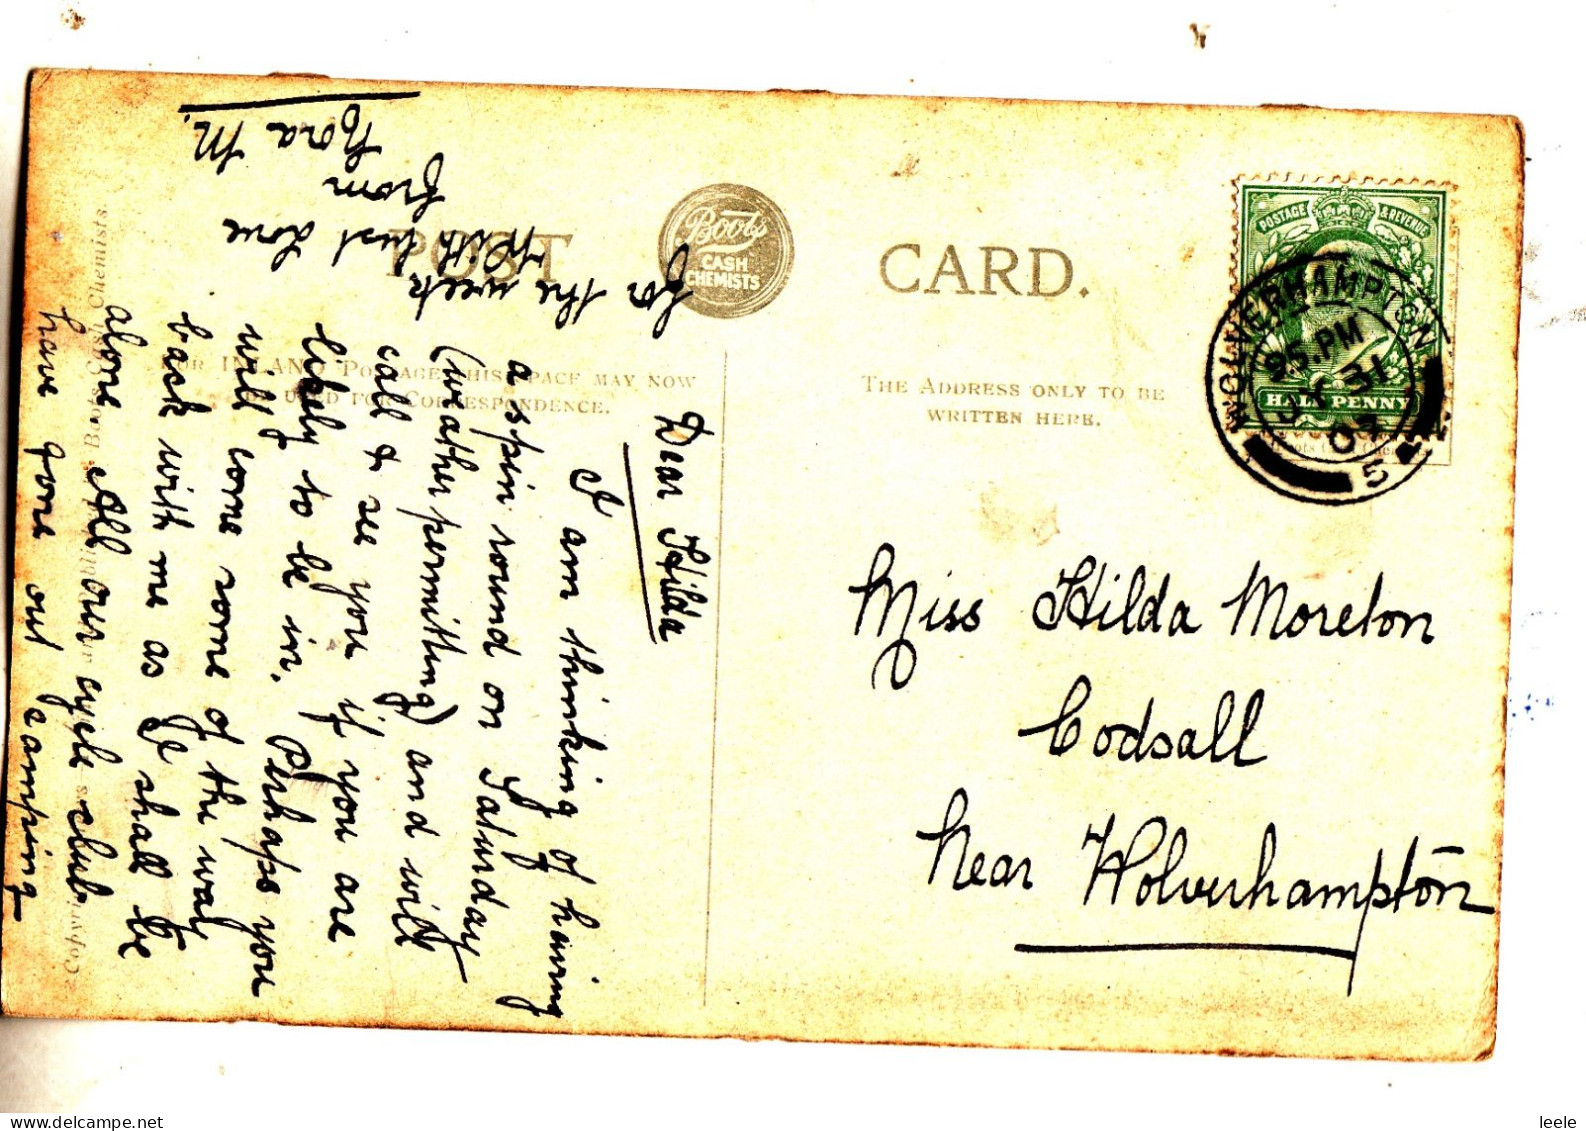 POST CARD.
Boots
CASH
CHEMISTS
FOR INLAND POSTAGE THIS SPACE MAY NOW
BE USED FOR CORRESPONDENCE.
THE ADDRESS ONLY TO BE
WRITTEN HERE.
POSTAGE & REVENUE
HALF PENNY
WOLVERHAMPTON
PM
31
5
Miss Hilda Moreton
Codsall
Near Wolverhampton
Dear Hilda
I am thinking of having
a spin round on Saturday
(weather permitting) and will
call & see you if you are
likely to be in. Perhaps you
will come some of the way
back with me as I shall be
alone. All our cycle club
have gone out camping
for the week
With best love
from
Nora M.
Boots Cash Chemists.